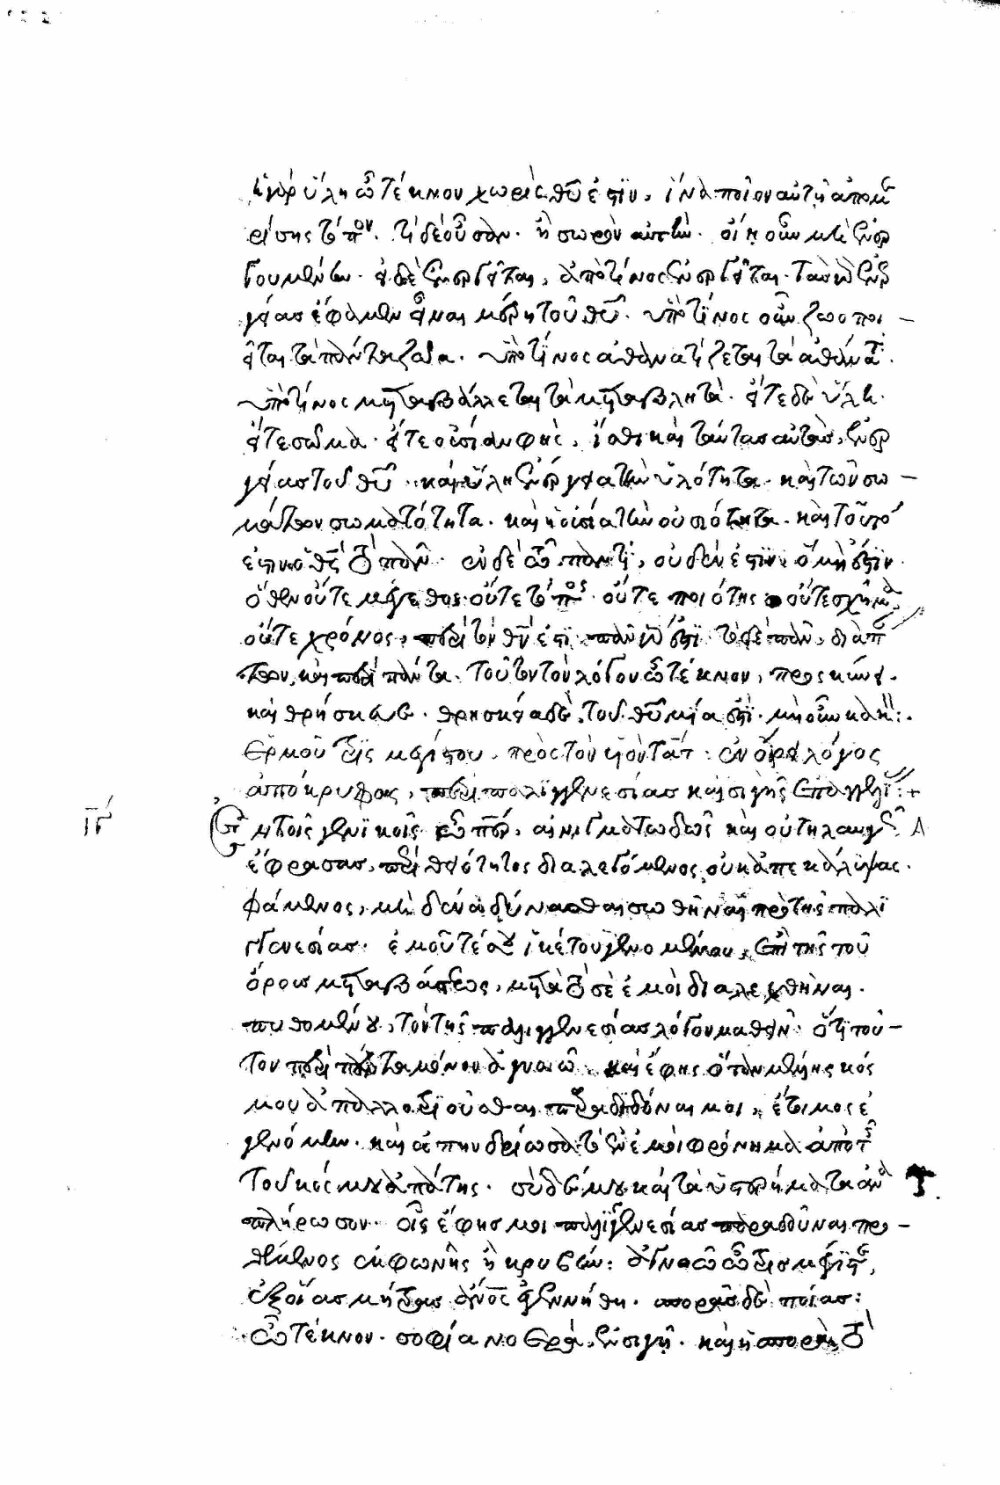 ἡ γὰρ ὕλη ὦ τέκνον χωρὶς θῦ ἐστὶν, ἵνα ποῖον αὐτῇ ἀποκ
ρίσης τόπον. τί δὲ οὖσαν ἢ σωρὸν αὐτὴν οἴει οὖν μὴ ἐνερ
γουμένην. εἰ δὲ ἐνεργεῖται, ἀπὸ τίνος ἐνεργεῖται. τὰς γὰρ ἐνερ
γείας ἔφαμεν εἶναι μέρη τοῦ θῦ. ὑπὸ τίνος οὖν ζωοποι
εῖται τὰ πάντα ζῶα. ὑπὸ τίνος ἀθανατίζεται τὰ ἀθάνατα.
ὑπὸ τίνος μεταβάλλεται τὰ μεταβλητά. εἴτε δὲ ὕλη.
εἴτε σῶμα. εἴτε οὐσίαν φῆς, ἴσθι καὶ ταύτας αὐτὰς, ἐνερ
γείας τοῦ θῦ. καὶ ὕλη ἐνέργεια τὴν ὑλότητα. καὶ τῶν σω
μάτων σωματότητα. καὶ ἡ οὐσία τὴν οὐσιότητα. καὶ τοῦτό
ἐστιν ὁ θς τὸ πᾶν. ἐν δὲ τῷ παντὶ, οὐδέν ἐστιν ὃ μὴ ἔστιν.
ὅθεν οὔτε μέγεθος οὔτε τόπος. οὔτε ποιότης οὔτε σχῆμα,
οὔτε χρόνος, περὶ τὸν θν ἐστὶ. πᾶν γάρ ἐστι. τὸ δὲ πᾶν, διὰ πάν
των, καὶ περὶ πάντα. τοῦτον τὸν λόγον ὦ τέκνον, προσκύνει.
καὶ θρήσκευε. θρησκεία δὲ τοῦ θῦ μία ἐστὶ. μὴ εἶναι κακόν:.
Ἑρμοῦ τρισμεγίστου, πρὸς τὸν υἱὸν τάτ: ἐν ὄρει λόγος
ἀπόκρυφος, περὶ παλιγγενεσίας καὶ σιγῆς ἐπαγγελίας:+
ιγ Ἐν τοῖς γενικοῖς ὦ περ, αἰνιγματωδῶς καὶ οὐ τηλαυγῶς
ἔφρασας, περὶ θειότητος διαλεγόμενος. οὐκ ἀπεκάλυψας.
φάμενος, μηδένα δύνασθαι σωθῆναι πρὸ τῆς παλι
γγενεσίας. ἐμοῦ τέ σου ἱκέτου γενομένου, ἐπὶ τῆς τοῦ
ὄρους μεταβάσεως, μετὰ τὸ σὲ ἐμοὶ διαλεχθῆναι.
πυθομένου, τὸν τῆς παλιγγενεσίας λόγον μαθεῖν. ὅτι τοῦ
τον παρὰ πάντα μόνον ἀγνοῶ. καὶ ἔφης ὅταν μέλλης κόσ
μου ἀπαλλοτριοῦσθαι παραδιδόναι μοι, ἕτοιμος ἐ
γενόμην. καὶ ἀπηνδρείωσα τὸ ἐν ἐμοὶ φρόνημα ἀπὸ τῆς
τοῦ κόσμου ἀπάτης. σὺ δέ μου καὶ τὰ ὑστερήματα ἀνα
πλήρωσον. οἷς ἔφησ μοι παλιγγενεσίας παραδοῦναι προ
θέμενος ἐκ φωνῆς ἢ κρυβήν: ἀγνοῶ ὦ τρισμέγιστε,
ἐξ οἵας μήτρας ἄνος ἐγεννήθη. σπορᾶς δὲ ποίας:
ὦ τέκνον. σοφία νοερὰ, ἐν σιγῇ. καὶ ἡ σπορὰ, τὸ